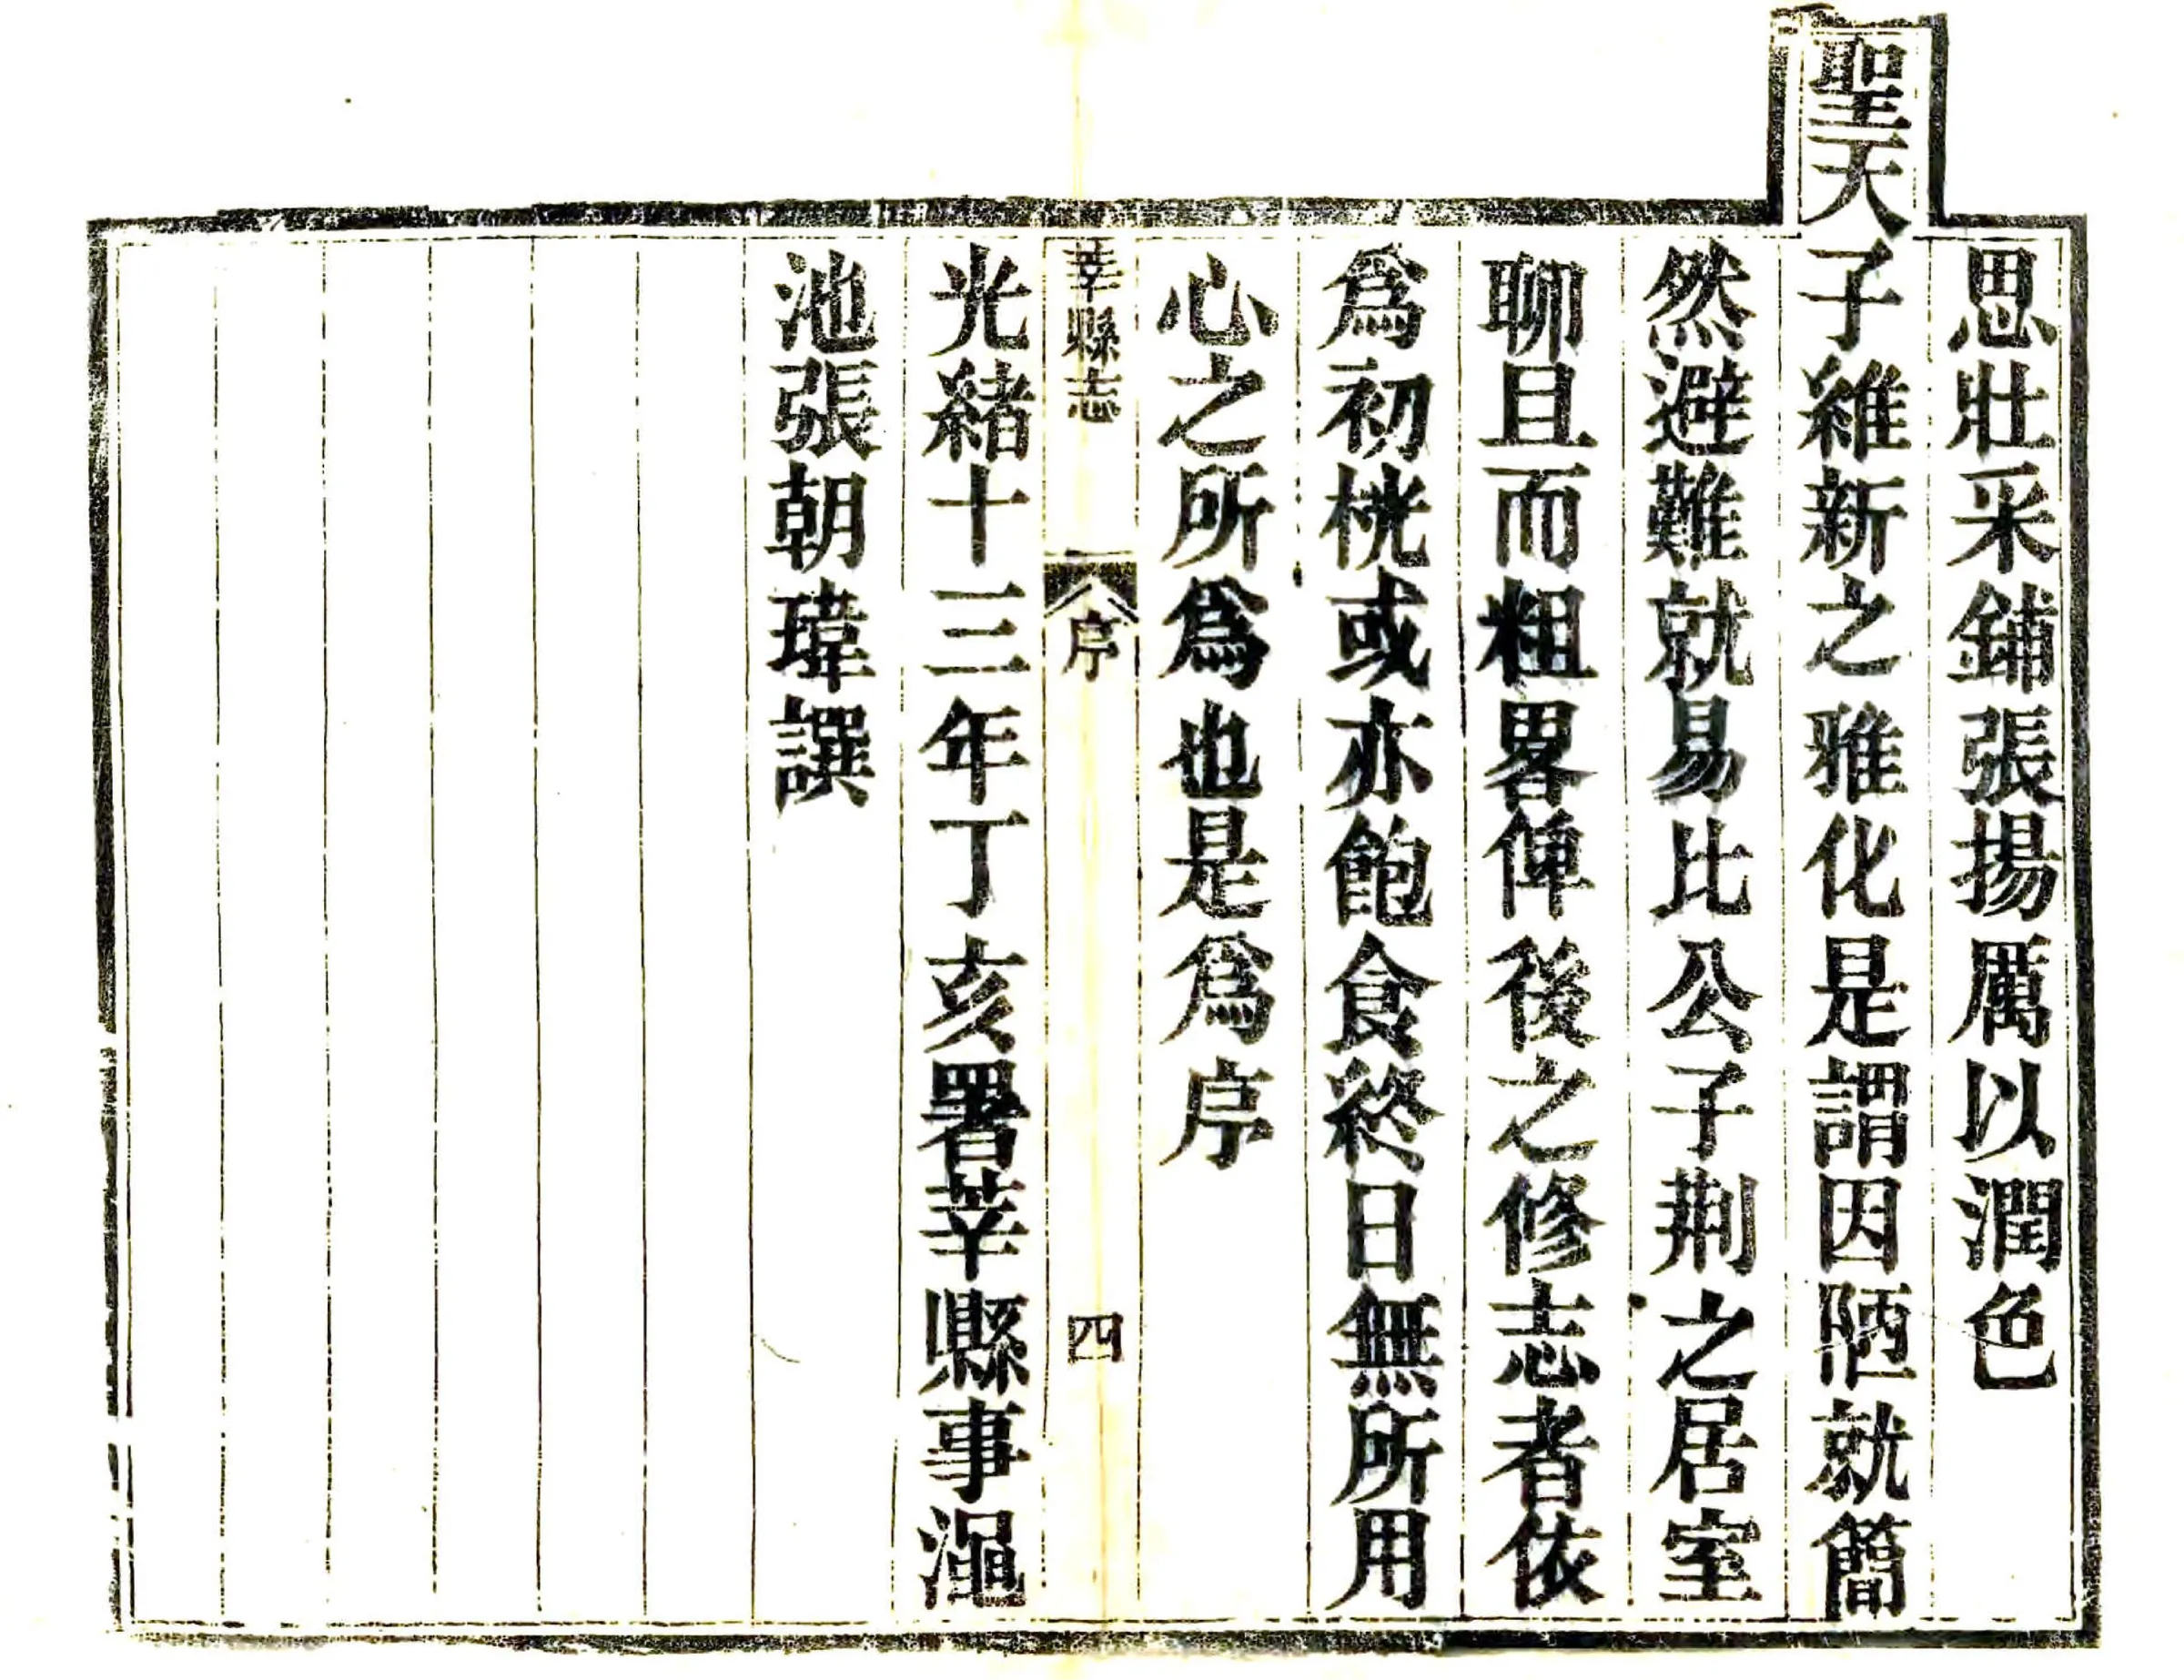 思壯采鋪張揚厲以潤色
聖天子維新之雅化是謂因陋就簡
然避難就易比公子荆之居室
聊且而粗畧俾後之修志者依
爲初桄或亦飽食終日無所用
心之所爲也是爲序
莘縣志 序 四
光緒十三年丁亥署莘縣事澠
池張朝瑋譔